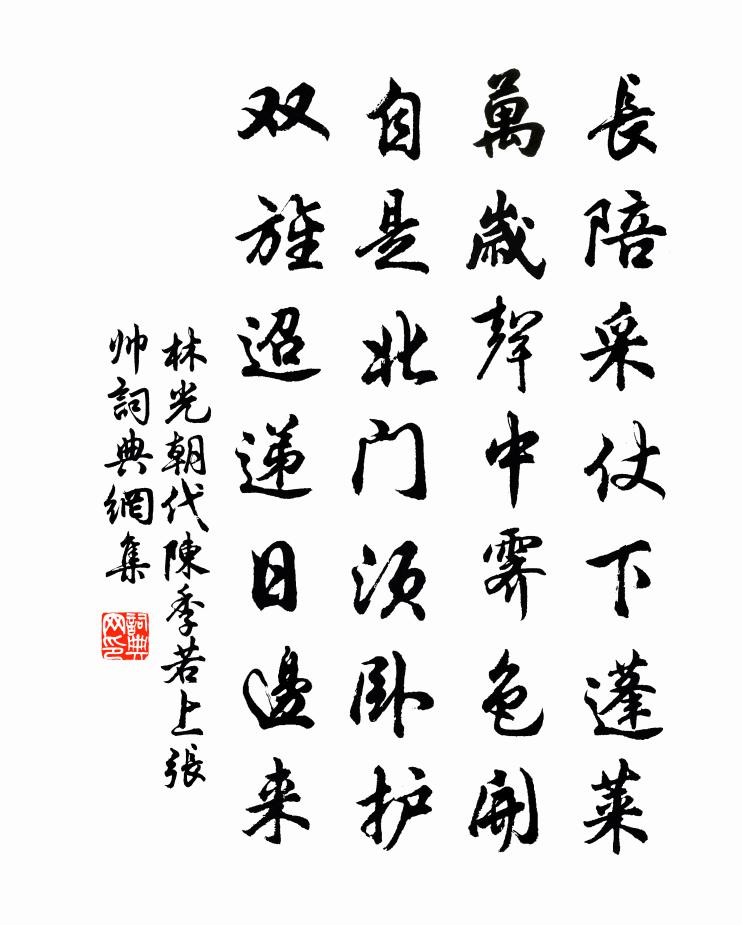 長陪采仗下蓬莱
萬歲聲中霽色開
自是北门须卧护
双旌迢递日邊来
林光朝代陳季若上張
帅詞典網集
詞典网印